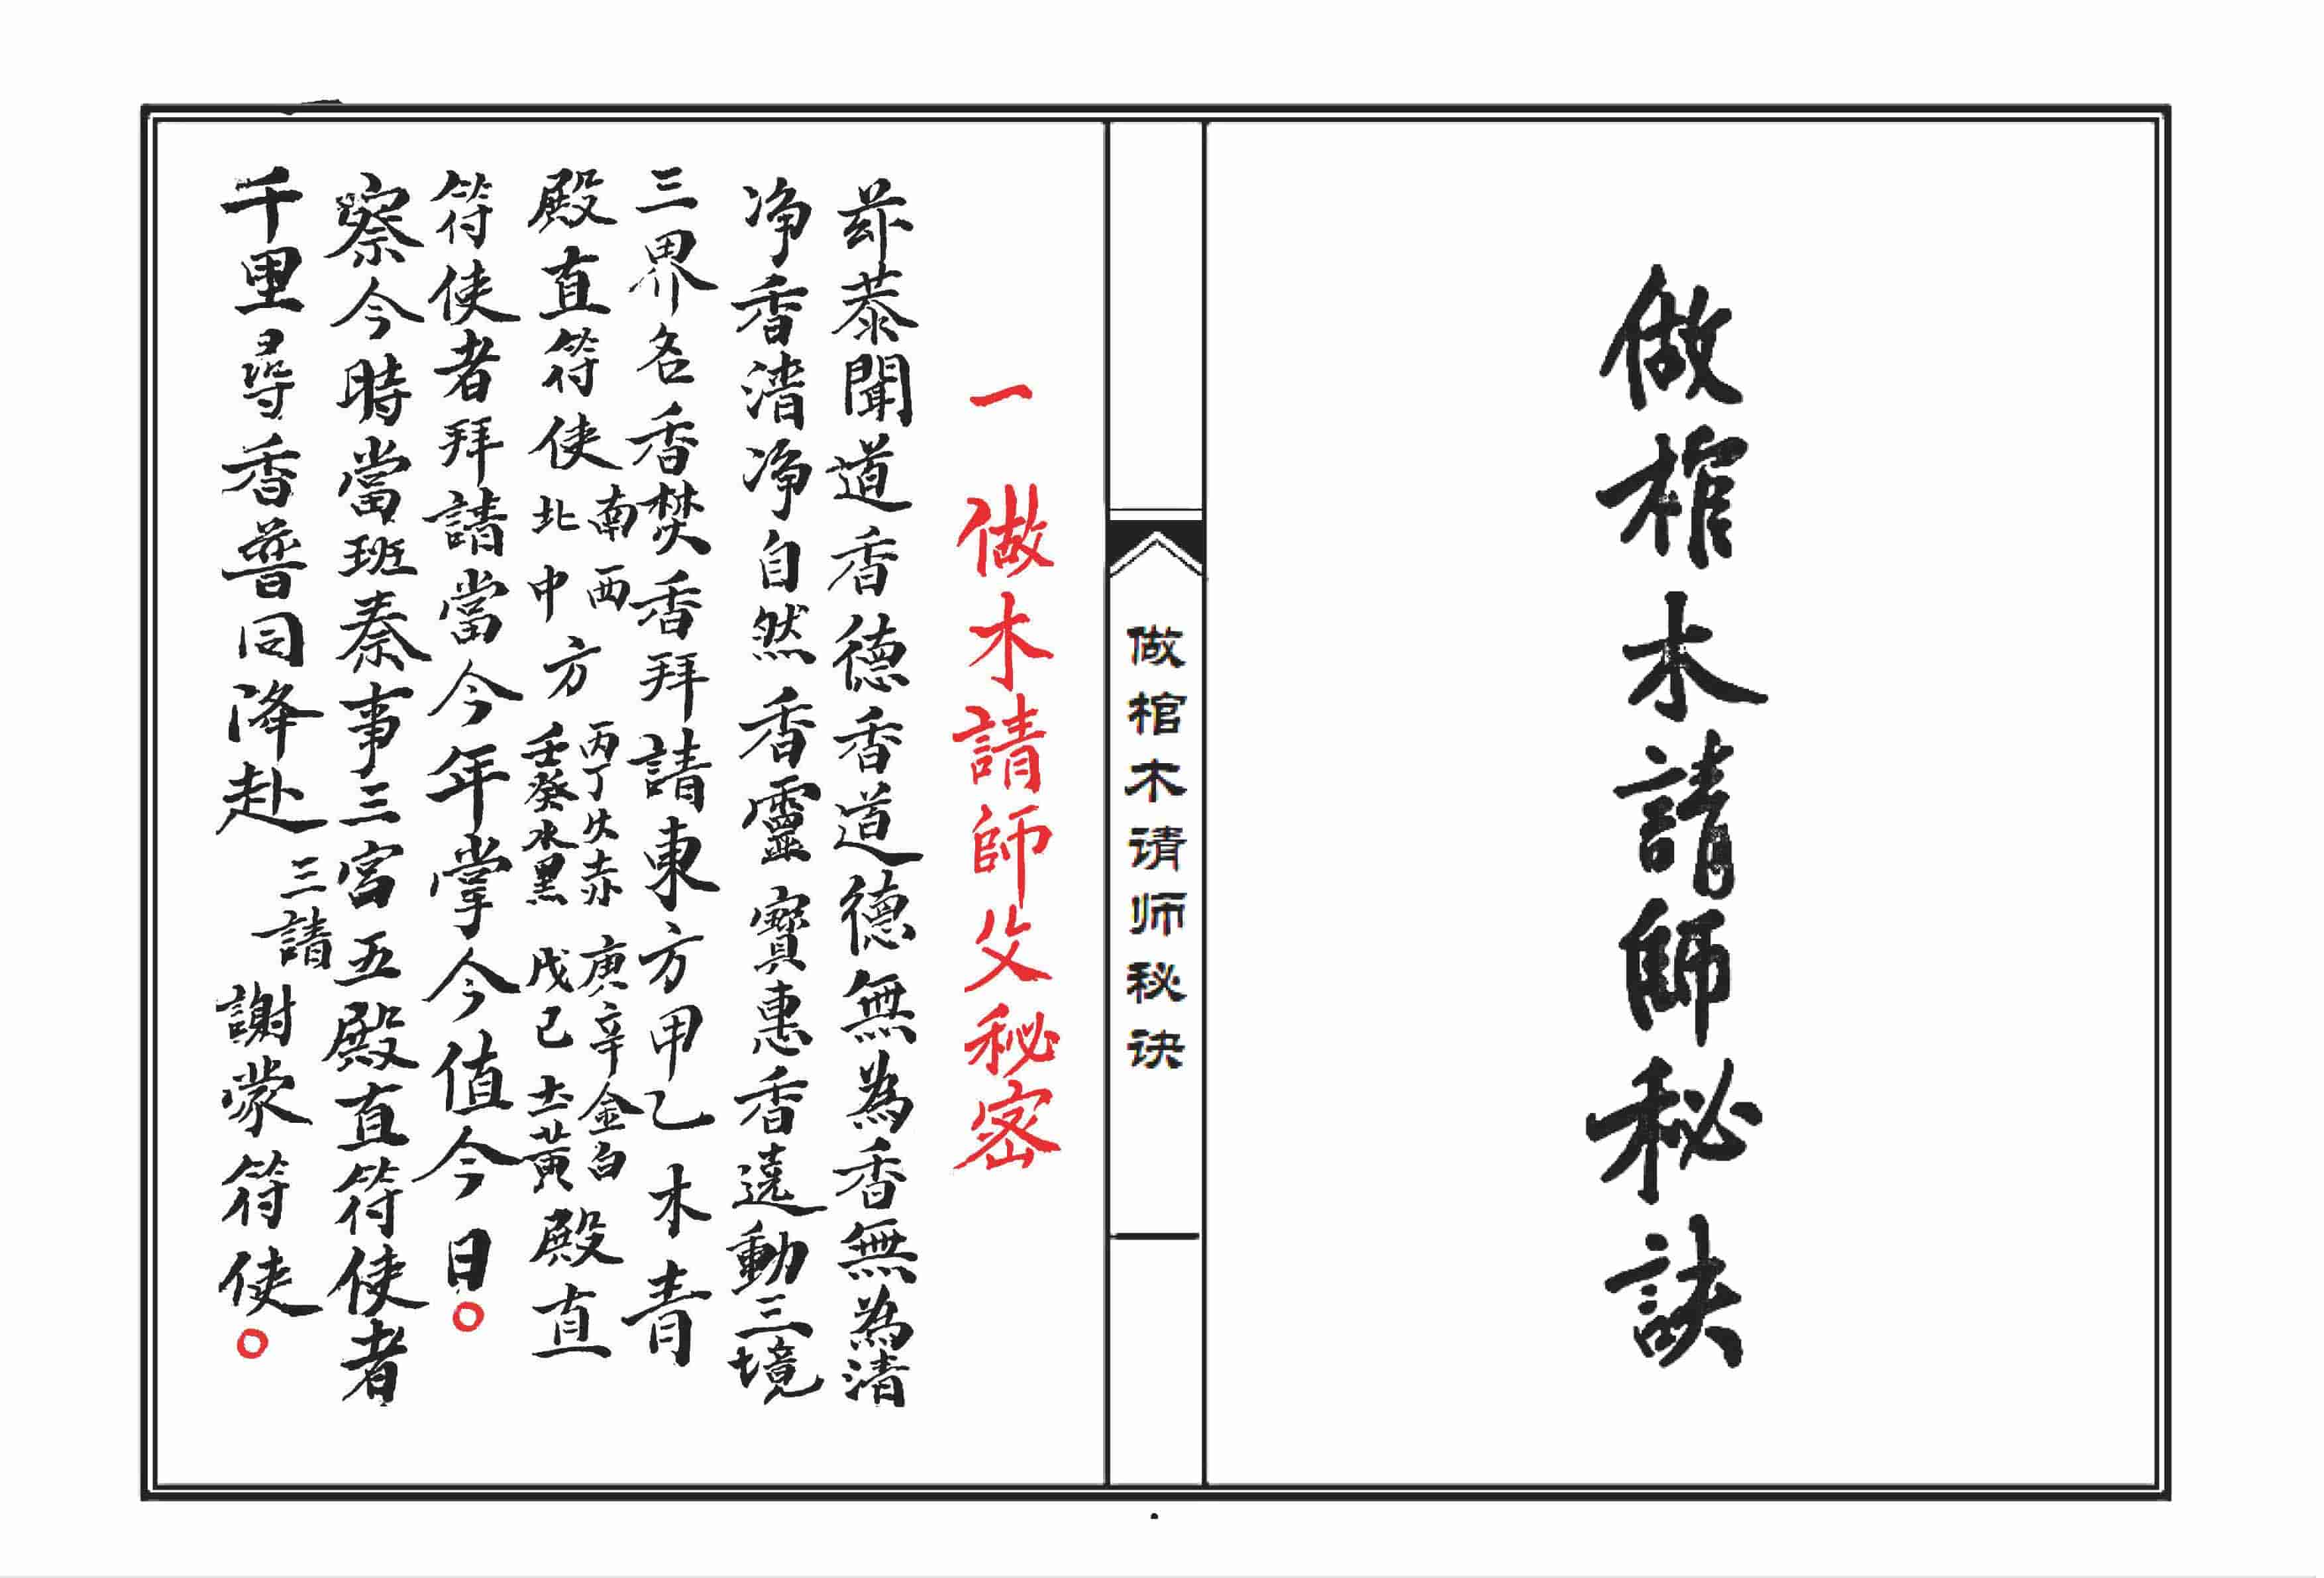 做棺木請師秘訣
做棺木请师秘诀
一 做木請師父秘密
恭聞道香德香道德無為香無為清
净香清净自然香靈寶惠香遠動三境
三界名香焚香拜請東方甲乙木青
殿直符使南西北中方丙丁火赤庚辛金白壬癸水黑戊己土黄殿直
符使者拜請當今年掌今值今日○
察今時當班奏事三宮五殿直符使者
千里尋香普同降赴三請謝蒙符使○